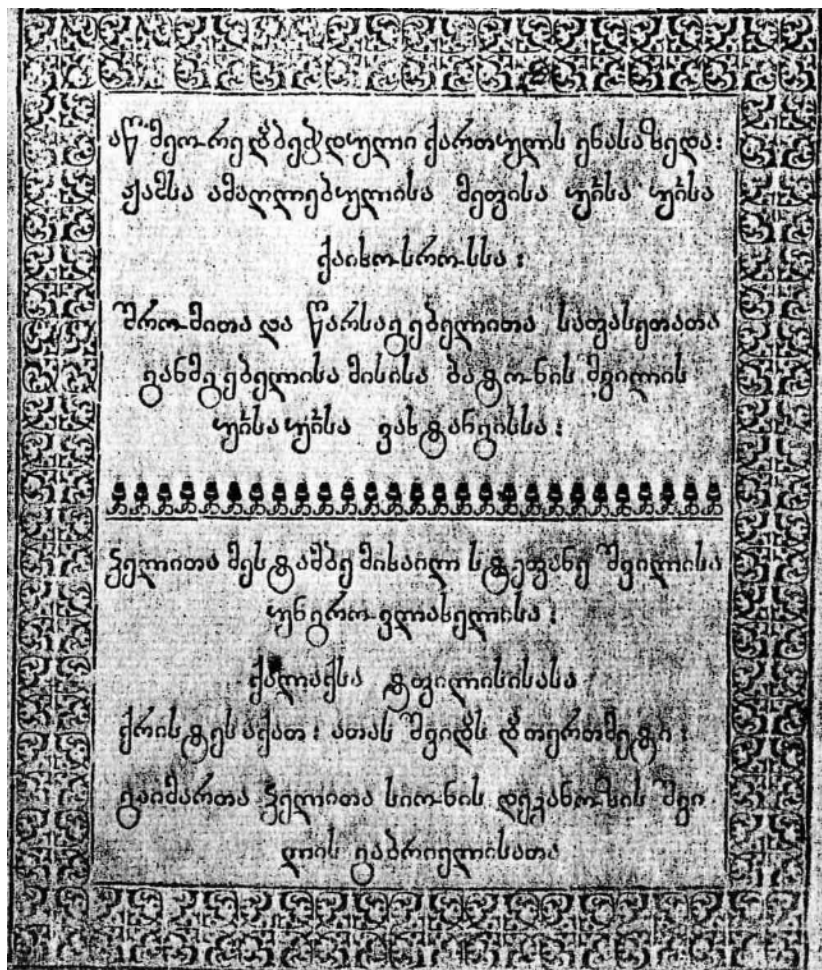 აწ მეორედ ბეჭდული ქართულს ენასაზედა:
ჟამსა ამაღლებულისა მეფისა
ქაიხოსროსსა:
შრომითა და წარსაგებელითა საფასეთათა
განმგებელისა მისისა ბატონის შვილის
ვახტანგისსა:
ჴელითა მესტამბე მიხაილ სტეფანე შვილისა
უნგროვლახელისა:
ქალაქსა ტფილისისასა
ქრისტეს აქათ: ათას შვიდს დ თერთმეტი:
გაიმართა ჴელითა სიონის დეკანოზის შვი
ლის გაბრიელისათა